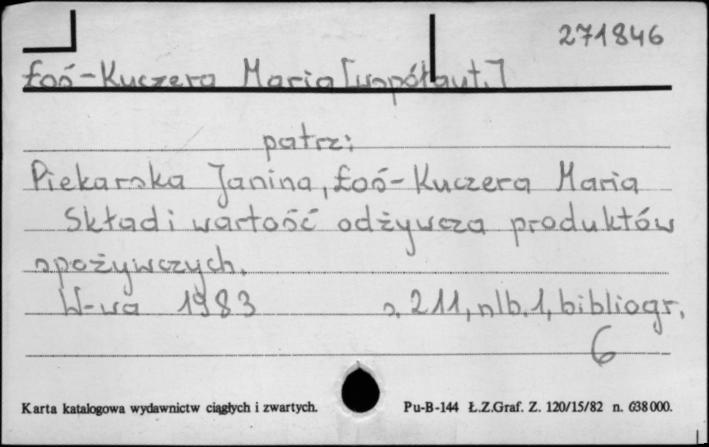 271846
Łoś-Kuczera Maria [współaut.]
patrz:
Piekarska Janina, Łoś-Kuczera Maria
Skład i wartość odżywcza produktów
spożywczych.
W-wa 1983 s. 211, nlb. 1, bibliogr.
6
Karta katalogowa wydawnictw ciągłych i zwartych. Pu-B-144 Ł.Z.Graf. Z. 120/15/82 n. 638000.